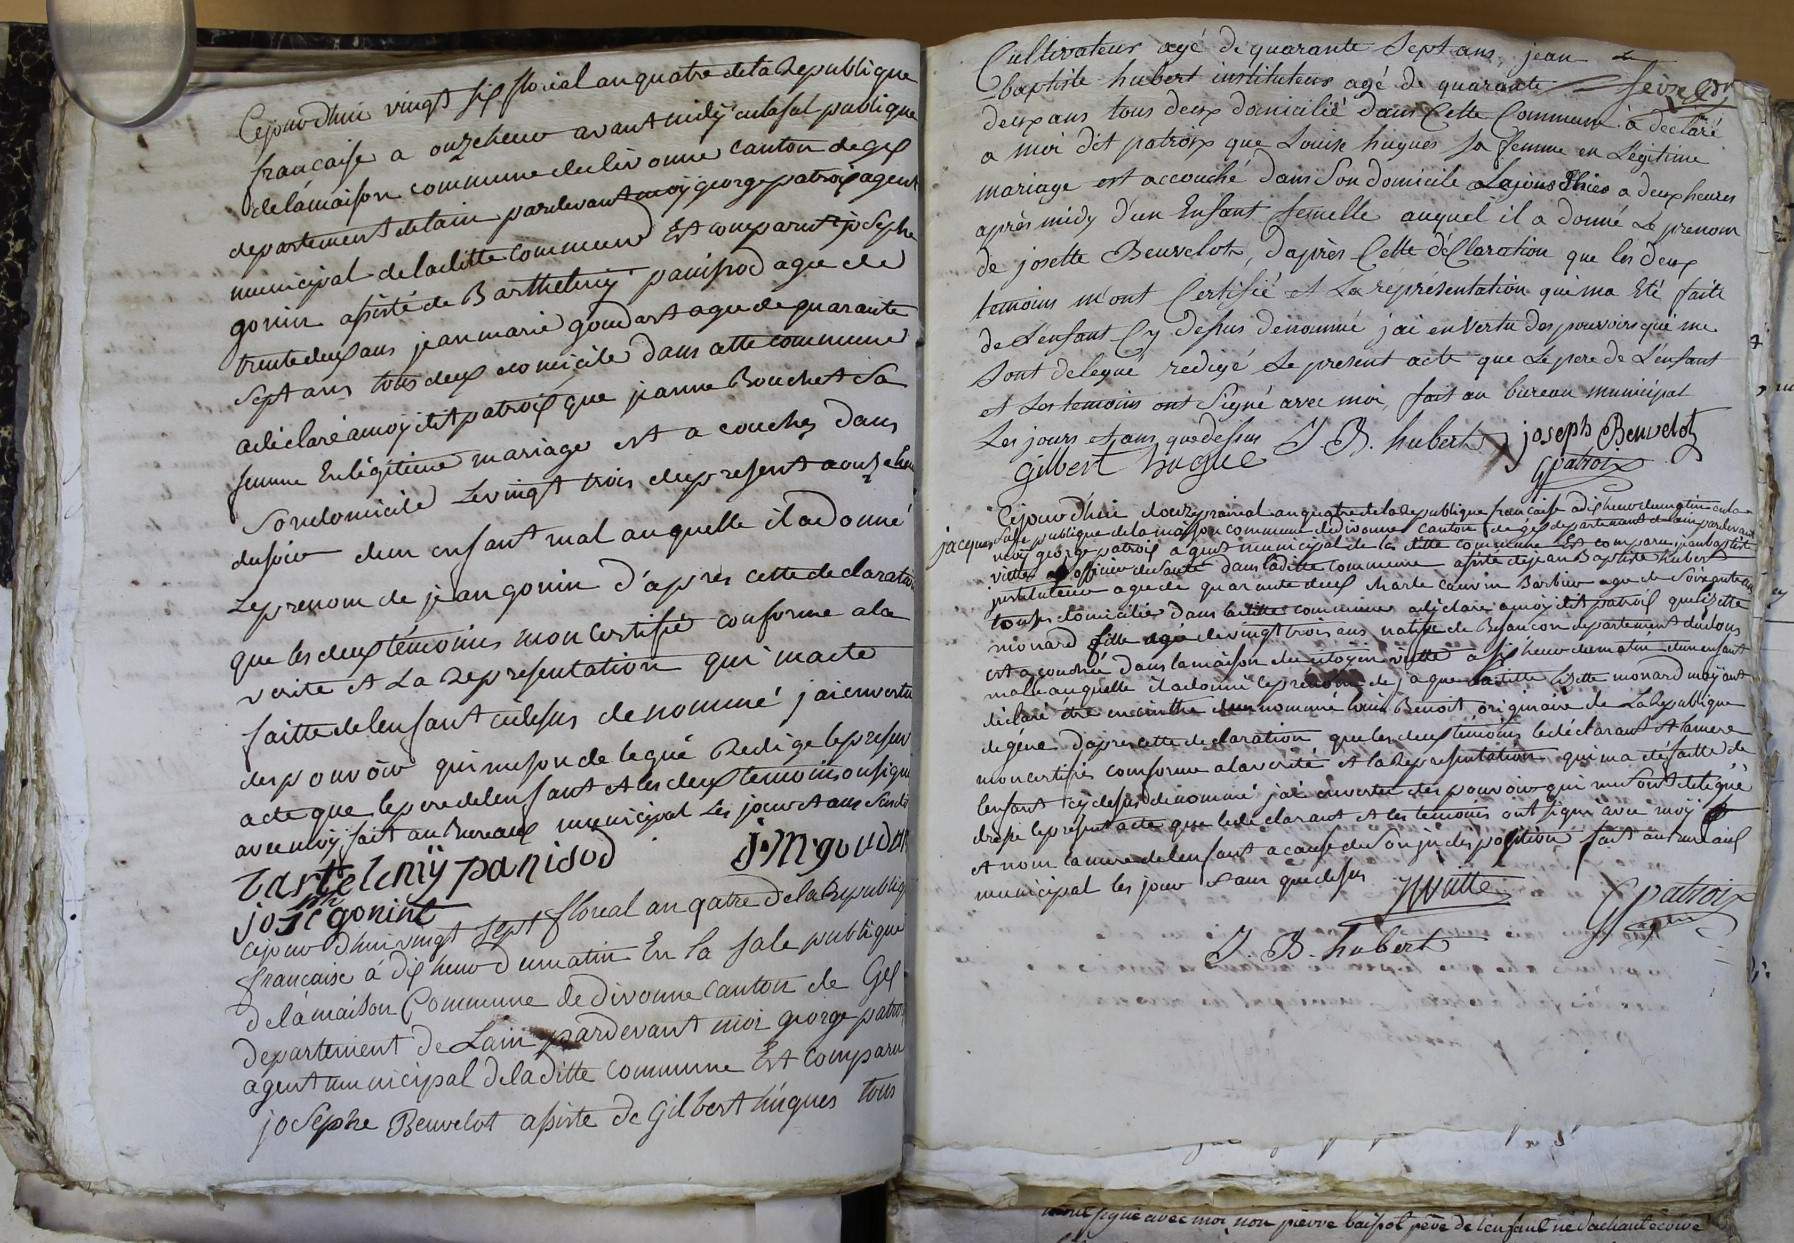 Cejourdhui vingt six floreal an quatre de la Republique
francaise a onze heur avant midy en la sal publique
de la maison commune de divonne canton de gex
departement de lain pardevant moy george patroix agent
municipal de laditte commune Est comparut josephe
gonin asisté de Barthelmy panisod age de
trente deux ans jean marie goudart age de quarante
sept ans tous deux domicile dans cette commune
a déclaré a moy dit patroix que jeanne Bouchet sa
femme En légitime mariage est a couchez dans
son domicile Le vingt trois du present a onze heur
du soir dun enfant mal au quelle il a donné
Le prenom de jean gonin d'apres cette declaration
que les deux témoins mon certifié conforme a la
verite et La Representation qui ma eté
faitte de lenfant cidesus denommé j'ai en vertu
des pouvoir qui me son delegué Redige le presen
acte que le pere de lenfant et les deux temoins on signé
avec moy fait au Bureaux municipal Les jour et ans susdit
bartelemÿ panisod j.m goudar
joseph gonint
cejourdhui vingt sept floreal an qatre de la Republiq
francaise á dix heur du matin En la sale publique
de la maison Commune de divonne canton de Gex
departement de Lain pardevant moi george patroi
agent municipal de laditte commune Est comparu
josephe Benvelot asiste de Gilbert húgues tous
Cultivateur agé de quarante Sept ans, jean
baptiste hubert instituteur agé de quarante seize
deux ans tous deux domicilié dans Cette Commune à declaré
a moi dit patroix que Louise hugues sa femme en Légitime
mariage est accouché dans Son domicile a deux heures
après midy d'un Enfant femelle auquel il a donné Le prenom
de josette Benvelot, d'après Cette déClaration que les deux
temoins m'ont Certifié et La réprésentation qui ma Eté faite
de Lenfant Cy dessus denommé j'ai en Vertu des pouvoirs qui me
Sont delegué redigé Le present acte que Le pere de L'enfant
et Les temoins ont Signé avec moi, fait au bureau municipal
Les jours et ans que dessus J. B. hubert joseph Benvelot
Gilbert hugue Gpatroix
Cejourdhui douze prairial an quatre de la Republique francaise a dix heur du matin en la
jacques salle publique de la maison commune de divonne canton de gex departement de lain pardevant
moy george patroix agent municipal de la ditte commune Est comparu jean baptiste
viatte officier de Santé dans la ditte commune asisté de jean Baptiste hubert
instituteur age de quarante deux charle Barbier age de Soixante ans
tous domicilié dans la ditte commune a déclaré a moy dit patroix que
monard fille agé de vingt trois ans natife de Besancon departement du doux
est acouchée dans la maison du citoyen viatte a six heur du matin dun enfant
male au quelle il a donné le prenom de jaque monard may ant
déclaré etre enceinthe dun nommé louis Benoit originaire de La Republique
de géne dapres cette declaration que les deux témoins le déclarant et la mere
mon certifié conforme a la verité et la Representation qui ma eté faitte de
lenfant cy desus denommé j'ai en vertu des pouvoir qui me sont delegué
dresse le présent acte que le declarant et les temoins ont signé avec moy
et non la mere de lenfant a cause de son indisposition fait au bureau
municipal les jour et ans que desus JViatte Gpatroix
agen
J. B. hubert
signé avec moi non pierre père de lenfant ne sachant écrire